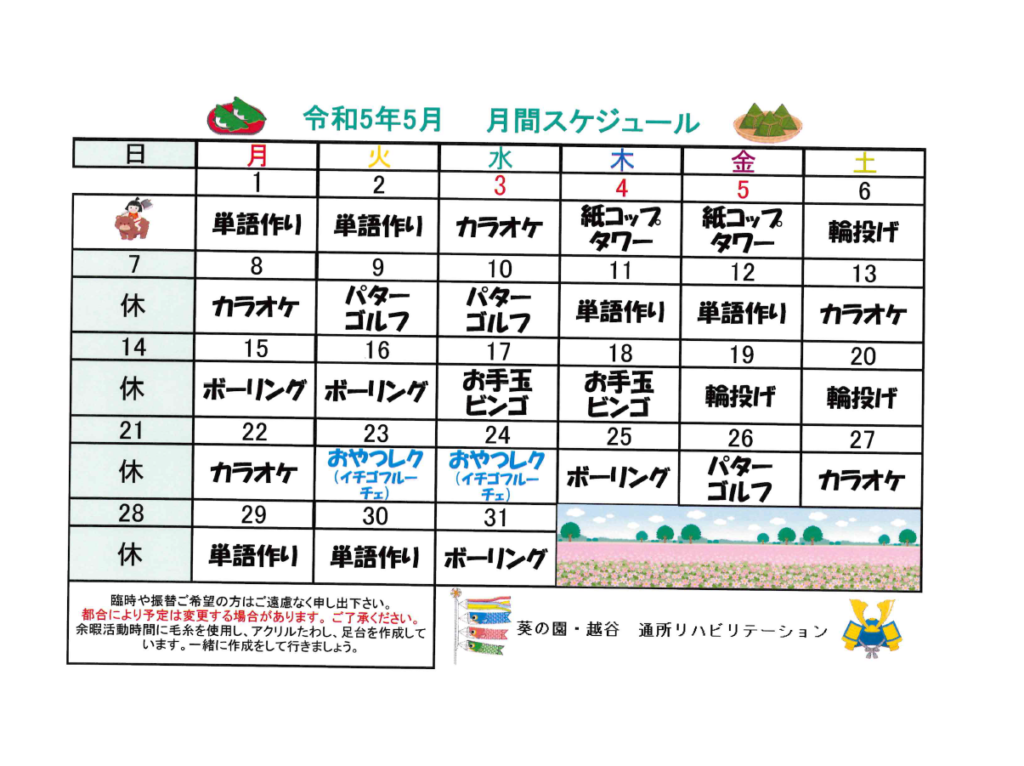 令和5年5月　月間スケジュール
日 月 火 水 木 金 土
1 2 3 4 5 6
単語作り 単語作り カラオケ 紙コップ 紙コップ 輪投げ
タワー タワー
7 8 9 10 11 12 13
休 カラオケ パター パター 単語作り 単語作り カラオケ
ゴルフ ゴルフ
14 15 16 17 18 19 20
休 ボーリング ボーリング お手玉 お手玉 輪投げ 輪投げ
ビンゴ ビンゴ
21 22 23 24 25 26 27
休 カラオケ おやつレク おやつレク ボーリング パター カラオケ
(イチゴフルー (イチゴフルー ゴルフ
チェ) チェ)
28 29 30 31
休 単語作り 単語作り ボーリング
臨時や振替ご希望の方はご遠慮なく申し出下さい。
都合により予定は変更する場合があります。ご了承ください。
余暇活動時間に毛糸を使用し、アクリルたわし、足台を作成して
います。一緒に作成をして行きましょう。
葵の園・越谷　通所リハビリテーション